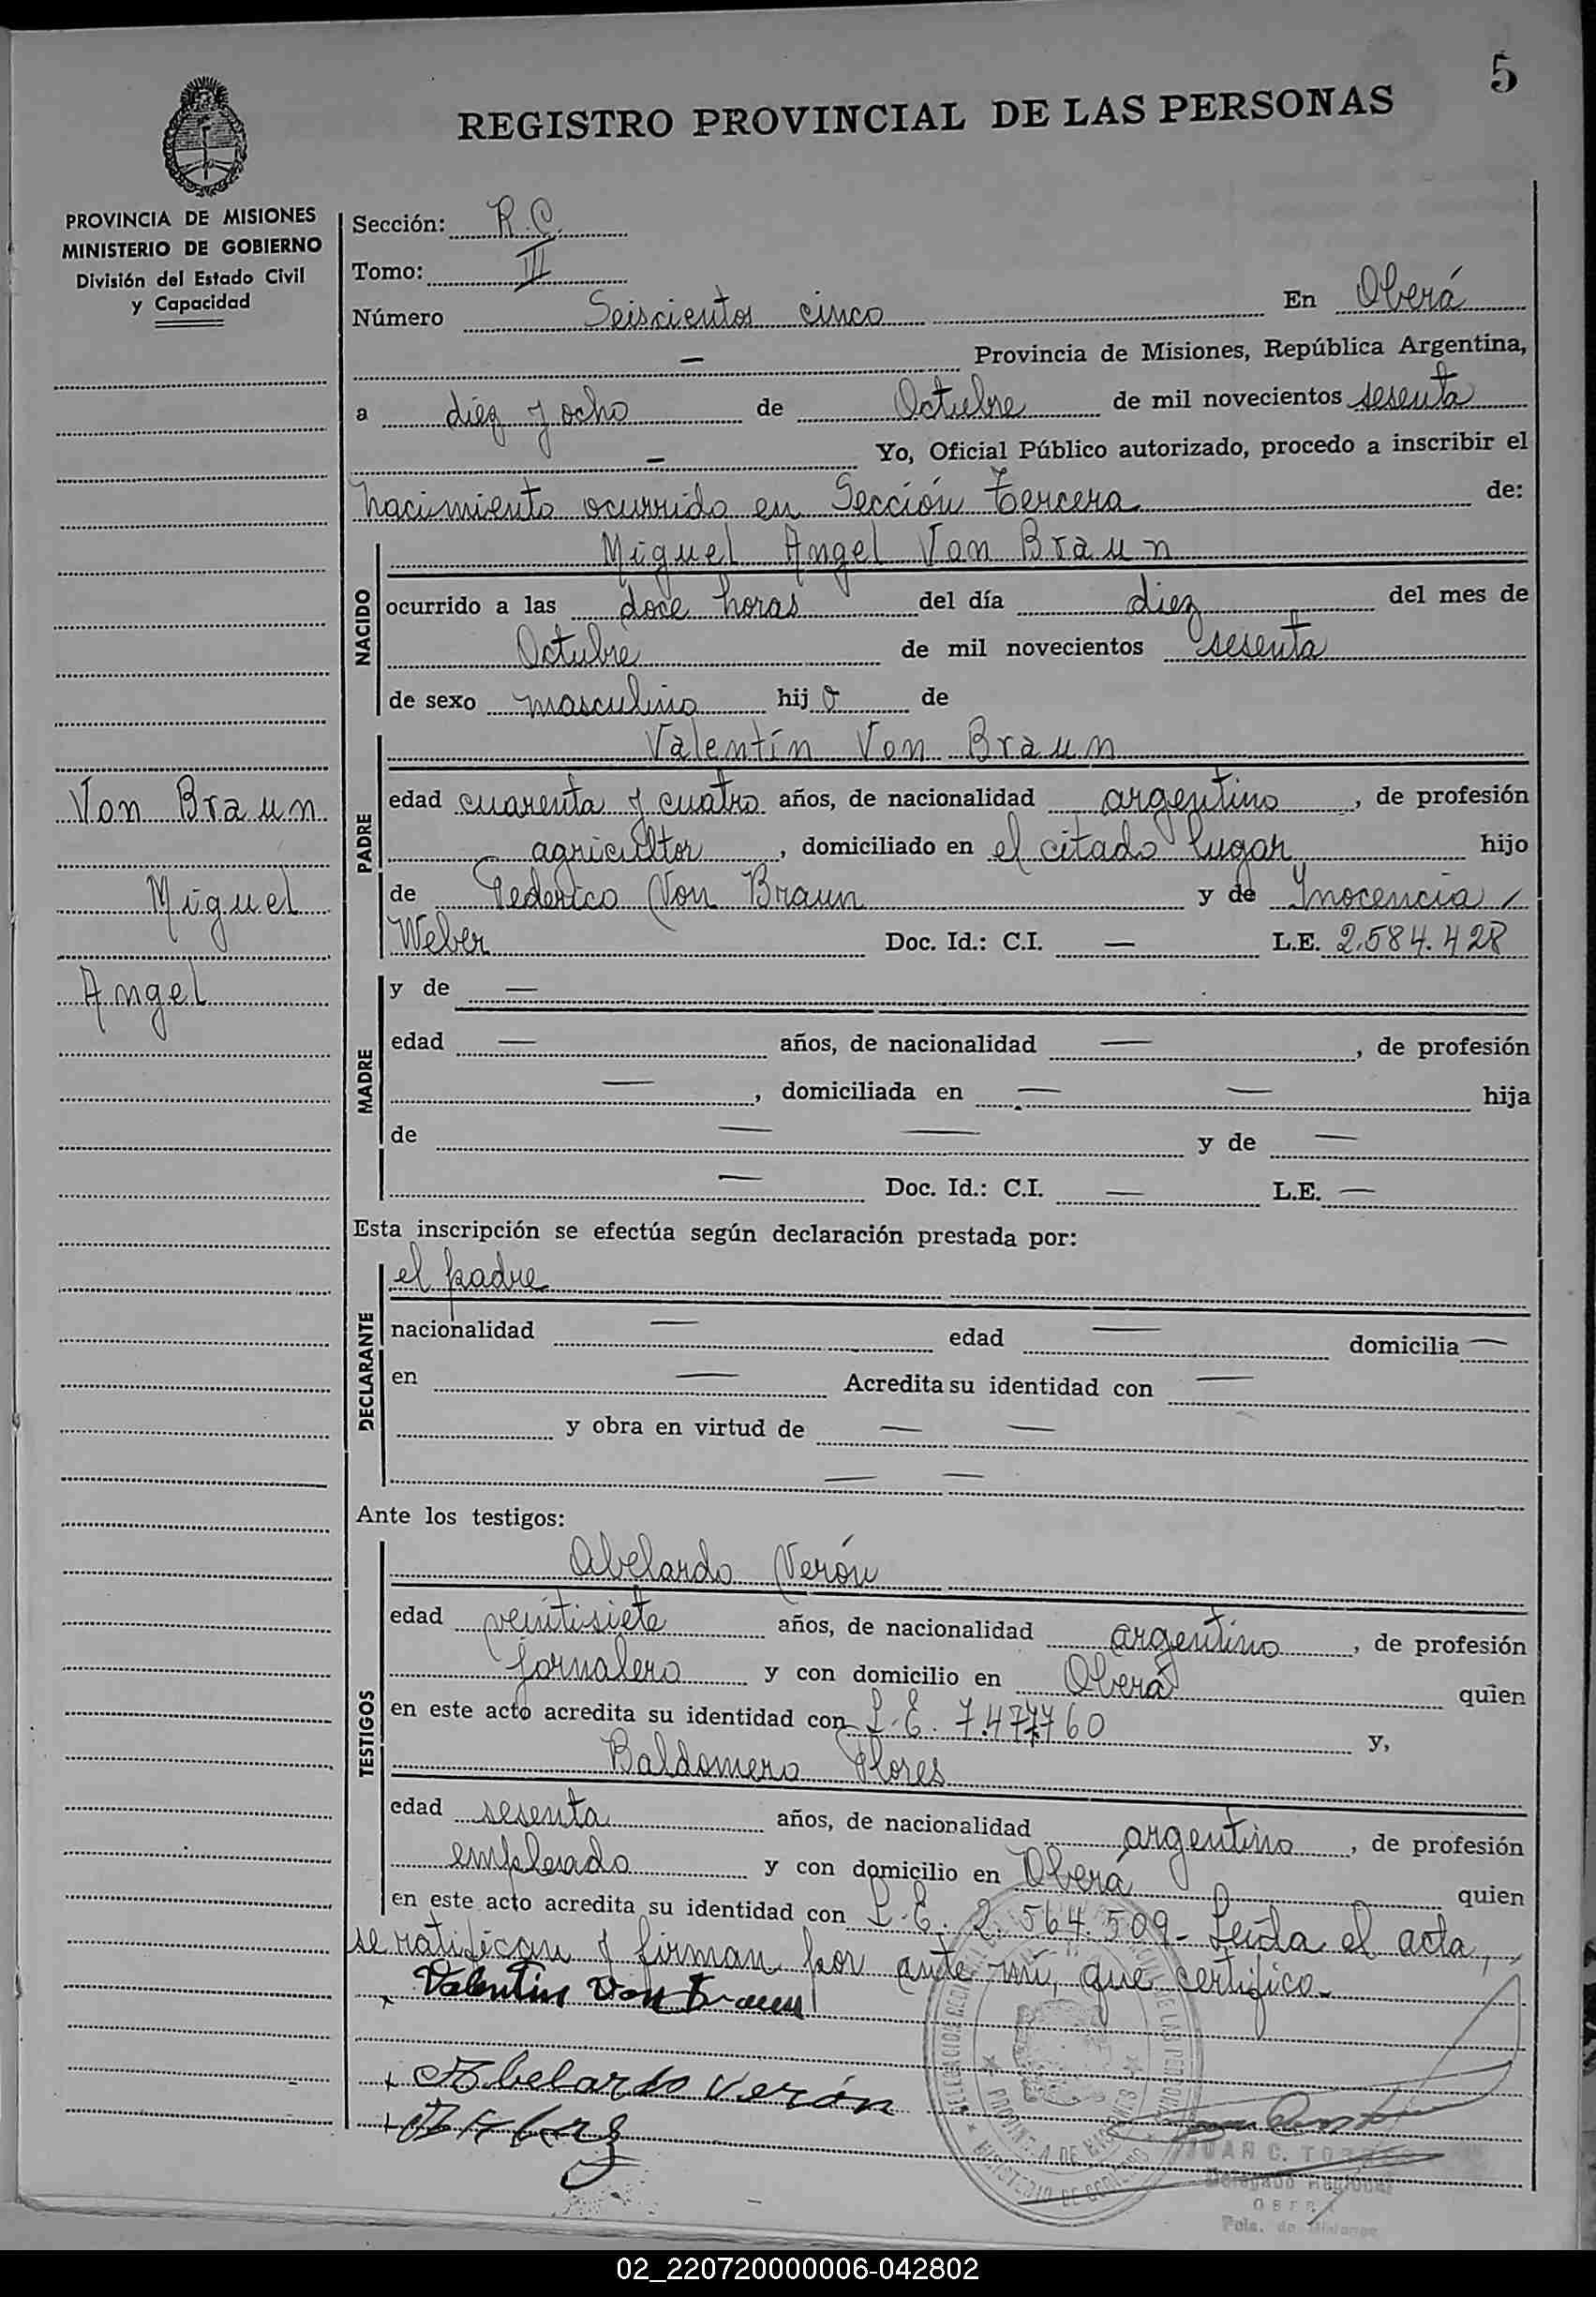 5
REGISTRO PROVINCIAL DE LAS PERSONAS
PROVINCIA DE MISIONES
MINISTERIO DE GOBIERNO
División del Estado Civil
y Capacidad
Sección: R.C.
Tomo: III
Número Seiscientos cinco En Oberá
— Provincia de Misiones, República Argentina,
a diez y ocho de Octubre de mil novecientos sesenta
— Yo, Oficial Público autorizado, procedo a inscribir el
nacimiento ocurrido en Sección tercera de:
Miguel Angel Von Braun
NACIDO
ocurrido a las doce horas del día diez del mes de
Octubre de mil novecientos sesenta
de sexo masculino hijo de
Valentín Von Braun
PADRE
edad cuarenta y cuatro años, de nacionalidad argentino, de profesión
agricultor, domiciliado en el citado lugar hijo
de Federico Von Braun y de Inocencia
Weber Doc. Id.: C.I. — L.E. 2.584.428
Von Braun
Miguel
Angel
MADRE
y de —
edad — años, de nacionalidad —, de profesión
—, domiciliada en — — hija
de — — y de —
— Doc. Id.: C.I. — L.E. —
Esta inscripción se efectúa según declaración prestada por:
DECLARANTE
el padre
nacionalidad — edad — domicilia —
en — Acredita su identidad con —
y obra en virtud de — —
— —
Ante los testigos:
TESTIGOS
Abelardo Verón
edad veintisiete años, de nacionalidad argentino, de profesión
jornalero y con domicilio en Oberá quien
en este acto acredita su identidad con L.E. y,
Baldomero Flores
edad sesenta años, de nacionalidad argentino, de profesión
empleado y con domicilio en Oberá quien
en este acto acredita su identidad con L.E. 2.564.509- Leída el acta,
se ratifican y firman por ante mí, que certifico.
Valentin Von Braun
Abelardo Verón
JUAN C. TORRES
Delegado Regional
OBERA
Pcia. de Misiones
02_220720000006-042802